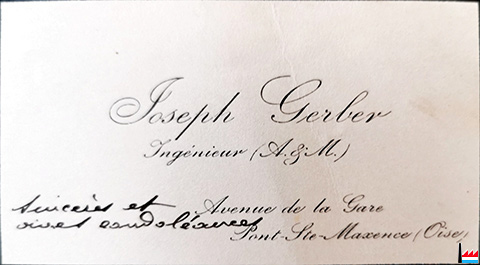 Joseph Gerber
Ingénieur (A.&M.)
sincères et
vives condoléances
Avenue de la Gare
Pont-Ste-Maxence (Oise)